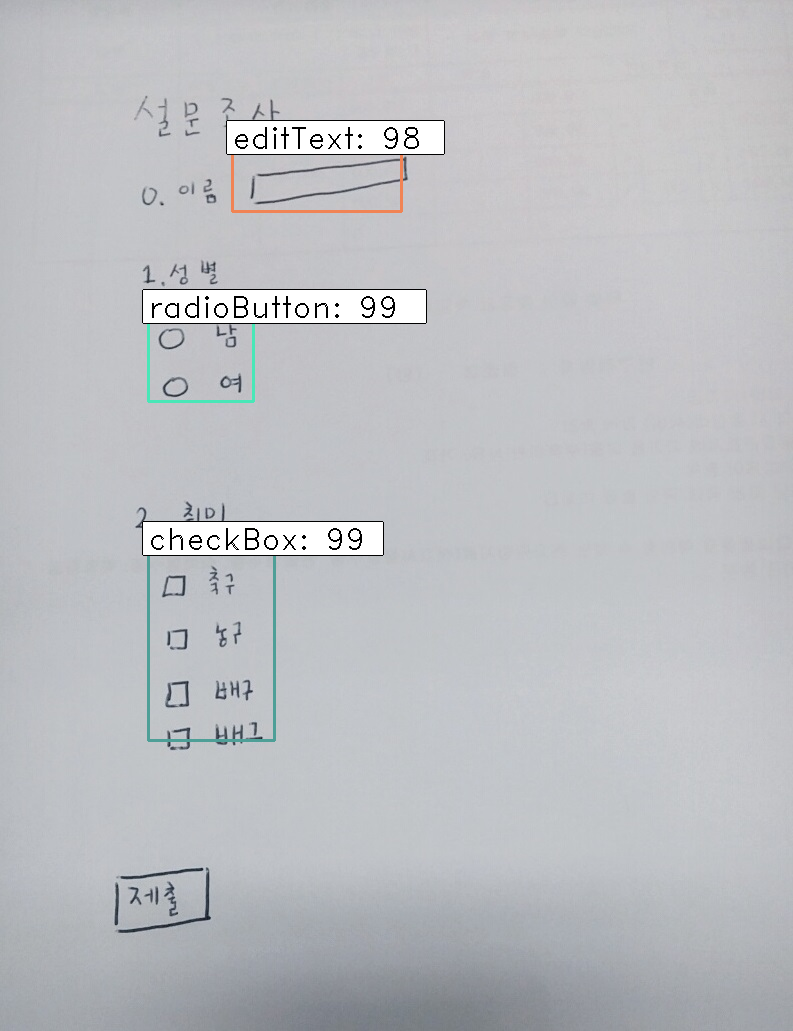 설문조사
editText: 98
0. 이름
1. 성별
radioButton: 99
남
여
2. 취미
checkBox: 99
축구
농구
배구
배구
제출